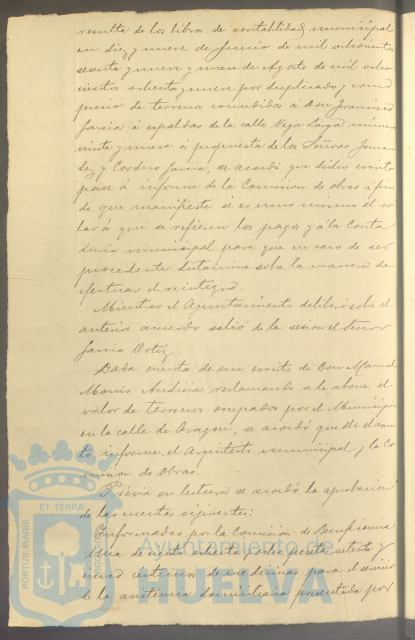 resulta de los libros de contabilidad municipal
en diez y nueve de Junio de mil ochocientos
sesenta y nueve y nueve de Agosto de mil ocho
cientos ochenta y nueve por duplicado y como
precio de terrenos concedidos á Don Francisco
García á espaldas de la calle Vega Larga número
veinte y nueve á propuesta de los Señores
y Cordero García, se acordó que dicho escrito
pase á informe de la Comision de obras á fin
de que manifieste si es uno mismo el so
lar á que se refieren los pagos y á la Conta
duría municipal para que en caso de ser
procedente dictamine sobre la manera de
efectuar el reintegro.
Mientras el Ayuntamiento deliberó sobre el
anterior acuerdo salió de la sesion el Señor
García Ortiz.
Dada cuenta de un escrito de Don Manuel
reclamando se le abone el
valor de terrenos ocupados por el Municipio
en la calle de Aragon, se acordó que
informe el Arquitecto municipal y la Co
mision de Obras.
Prévia su lectura se acordó la aprobacion
de las cuentas siguientes:
Informadas por la Comision de Beneficencia
Una de ciento ochenta y ocho pesetas setenta y
cinco centimos de medicinas para el servicio
de la asistencia domiciliaria presentada por
PORTUS MARIS ET TERRAE CUSTODIA
Ayuntamiento de
HUELVA